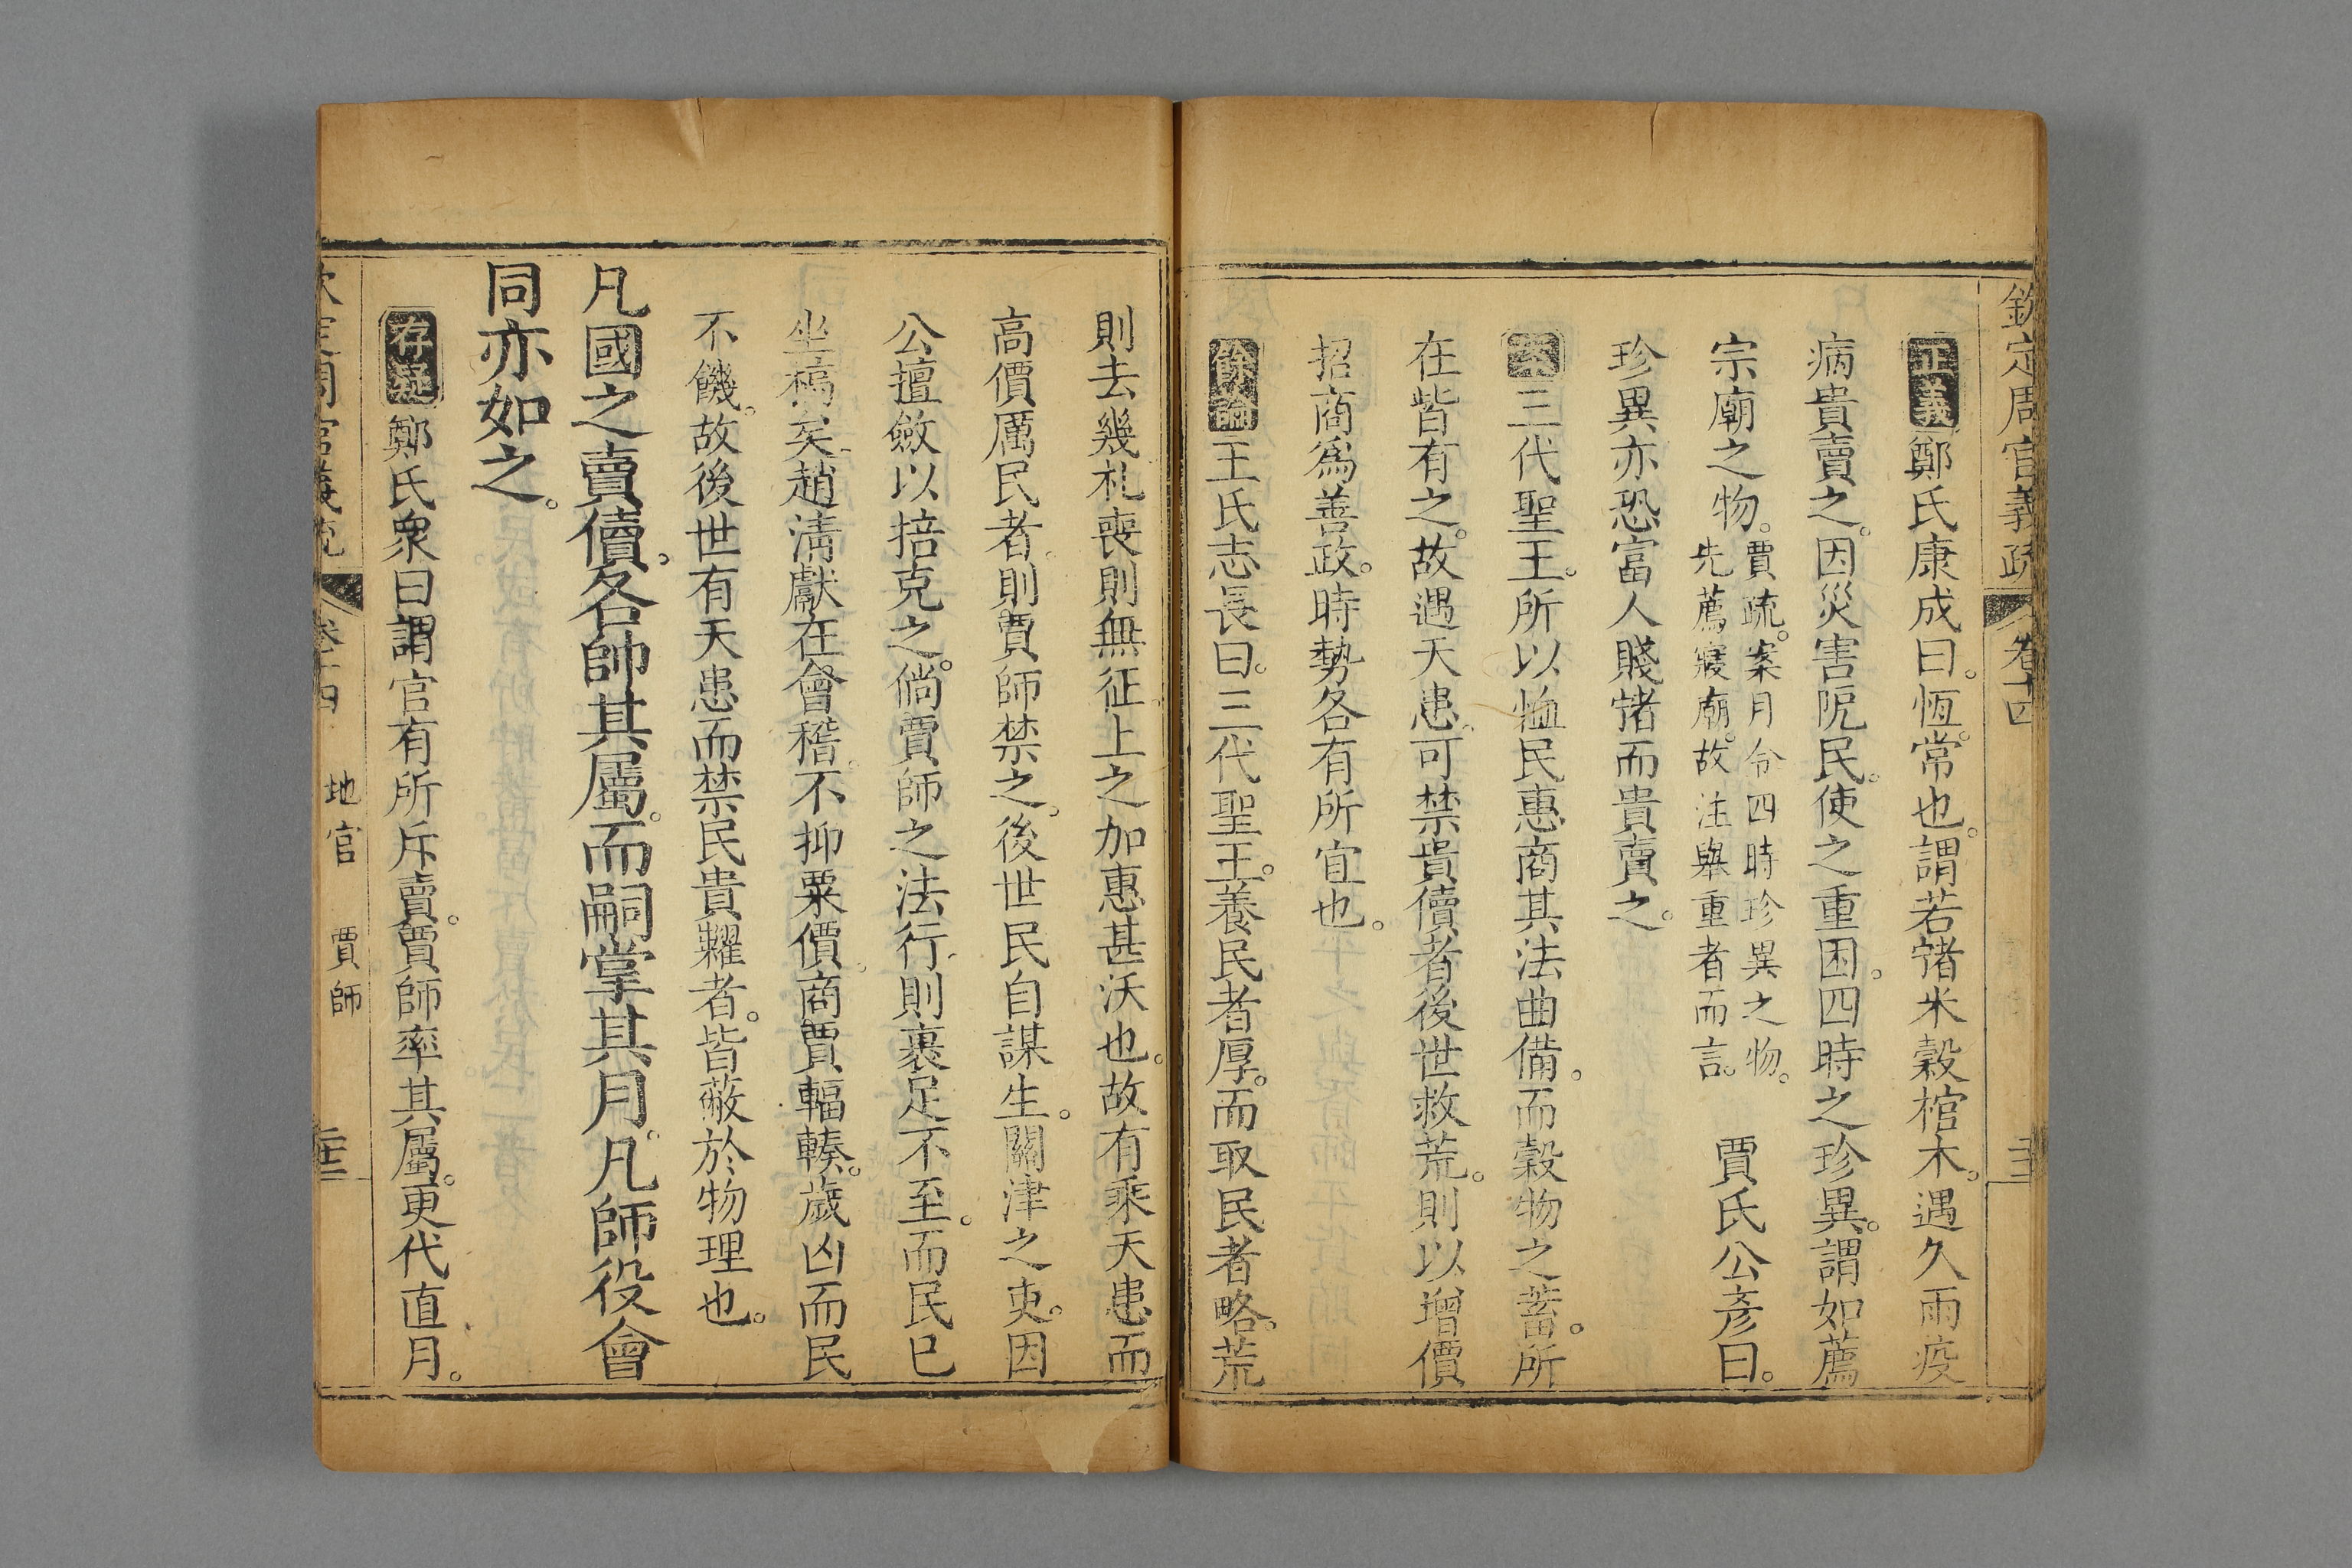 欽定周官義疏 卷十四
正義鄭氏康成曰。恆。常也。謂若豬米穀棺木。遇久雨疫
病貴賣之。因災害阨民。使之重困。四時之珍異。謂如薦
宗廟之物。賈疏。案月令四時珍異之物。先薦寢廟。故注舉重者而言。 賈氏公彥曰。
珍異亦恐富人賤豬而貴賣之。
案三代聖王。所以恤民惠商其法曲備。而穀物之蓄。所
在皆有之。故遇天患。可禁貴儥者後世救荒。則以增價
招商爲善政。時勢各有所宜也。
餘論王氏志長曰。三代聖王。養民者厚。而取民者略。荒
則去幾札喪則無征上之加惠甚沃也。故有乘天患而
高價厲民者。則賈師禁之。後世民自謀生。關津之吏。因
公擅斂以掊克之。倘賈師之法行。則裹足不至。而民已
坐槁矣。趙淸獻在會稽。不抑粟價。商賈輻輳。歲凶而民
不饑。故後世有天患而禁民貴糶者。皆蔽於物理也。
凡國之賣儥。各帥其屬。而嗣掌其月。凡師役會
同亦如之。
存疑鄭氏衆曰謂官有所斥賣。賈師率其屬。更代直月。
欽定周官義疏 卷十四 地官 賈師